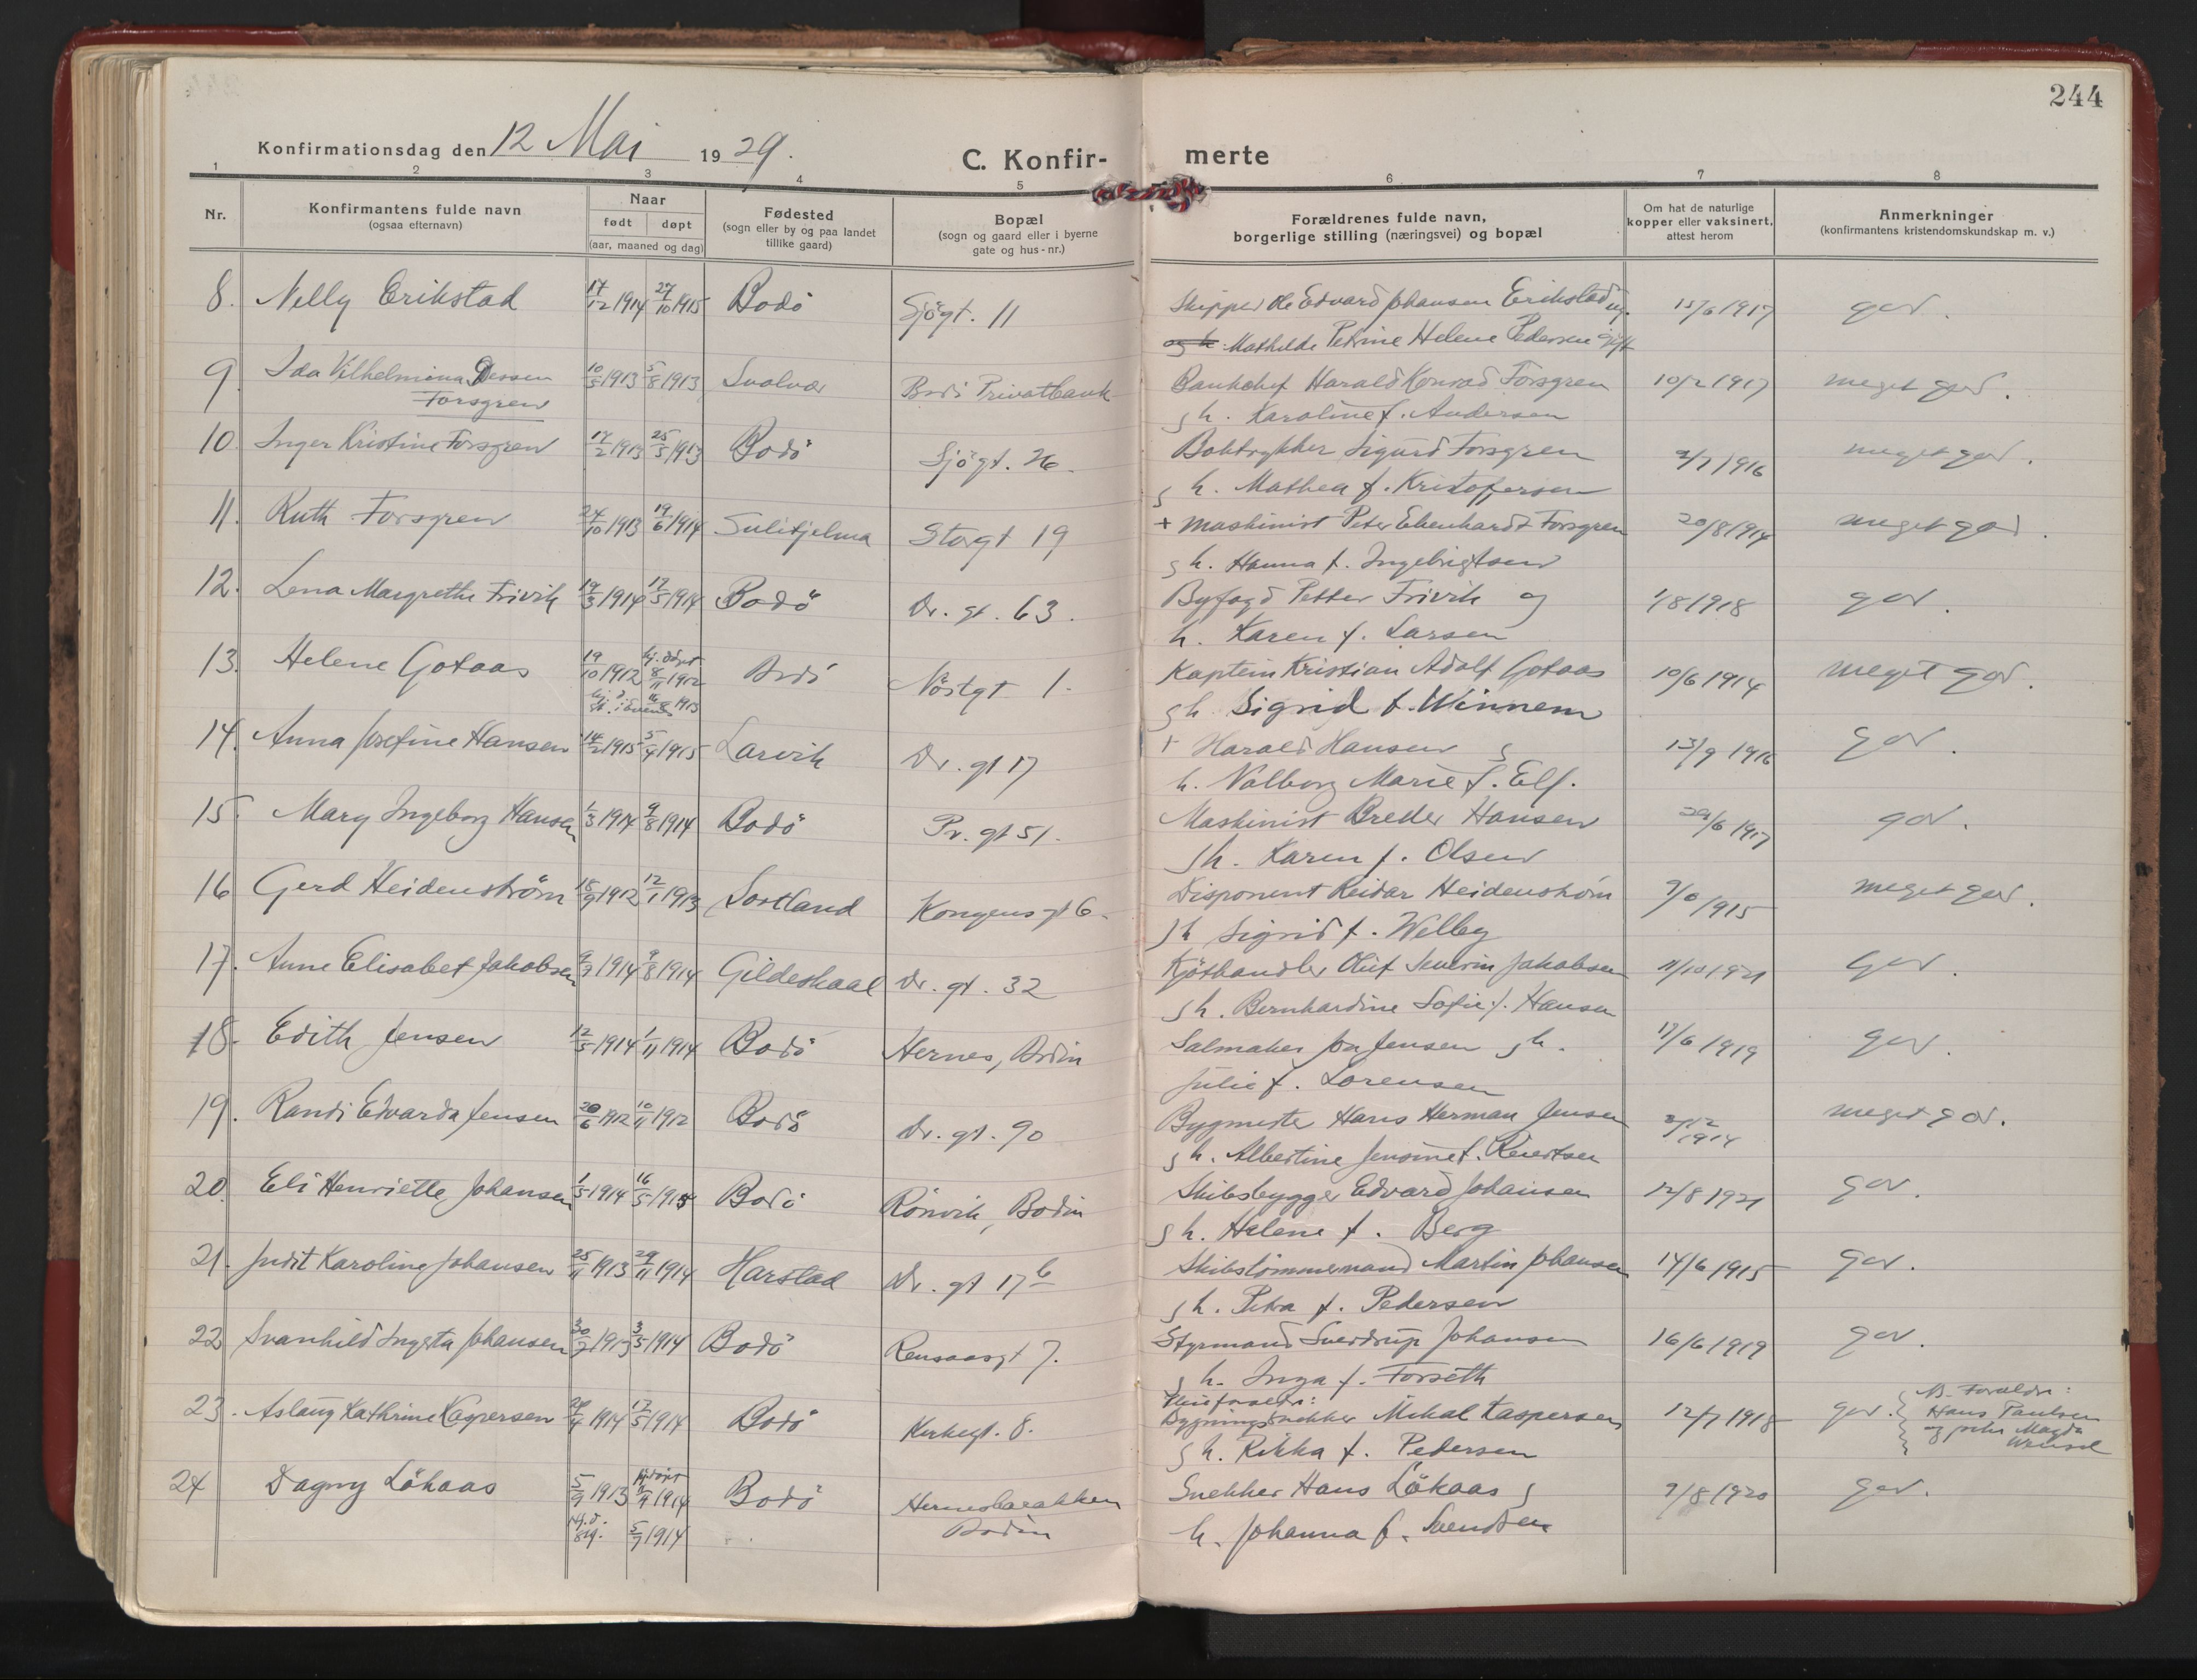 244
Konfirmationsdag den 12 Mai 1929.
C. Konfir- merte
1 2 3 4 5 6 7 8
Nr.
Konfirmantens fulde navn
(ogsaa efternavn)
Naar
født døpt
(aar, maaned og dag)
Fødested
(sogn eller by og paa landet
tillike gaard)
Bopæl
(sogn og gaard eller i byerne
gate og hus-nr.)
Forældrenes fulde navn,
borgerlige stilling (næringsvei) og bopæl
Om hat de naturlige
kopper eller vaksinert,
attest herom
Anmerkninger
(konfirmantens kristendomskundskap m. v.)
8. Nelly Erikstad 17/12 1914 27/10 1915 Bodö Sjögt. 11 Skipper Ole Edvard Johansen Erikstad ug. 15/6 1917 god.
Mathilde Petrine Helene Pedersen gift
9. Ida Vilhelmina Dessen 10/5 1913 5/8 1913 Svolvær Bodö Privatbank Bankchef Harald Konrad Forsgren 10/2 1917 meget god.
Forsgren g h. Karoline f. Andersen
10. Inger Kristine Forsgren 17/2 1913 25/5 1913 Bodö Sjögt. 26. Boktrykker Sigurd Forsgren 2/7 1916 meget god.
g h. Mathea f. Kristofersen
11. Ruth Forsgren 24/10 1913 19/6 1914 Sulitjelma Storgt 19 + maskinist Peter Ehenhardt Forsgren 20/8 1914 meget god.
g h. Hanna f. Ingebrigtsen
12. Lena Margrethe Frivik 19/3 1914 17/5 1914 Bodö Dr. gt. 63. Byfogd Petter Frivik og 1/8 1918 god.
h. Karen f. Larsen
13. Helene Gotaas 19/10 1912 hj. döpt 8/11 1912 Bodö Nöstgt 1. Kaptein Kristian Adolf Gotaas 10/6 1914 meget god.
1913 g h. Sigrid f. Winnem
14. Anna Josefine Hansen 14/2 1915 5/4 1915 Larvik Dr. gt 17 + Harald Hansen g 13/9 1916 god.
h. Valborg Marie f. Elf.
15. Mary Ingeborg Hansen 1/3 1914 9/8 1914 Bodö Pr. gt 51. Maskinist Breder Hansen 29/6 1917 god.
g h. Karen f. Olsen
16 Gerd Heidenström 18/9 1912 12/1 1913 Sortland Kongens gt 6. Disponent Reidar Heidenström 1915 meget god.
g h Sigrid f. Welby
17. Anne Elisabet Jakobsen 1914 9/8 1914 Gildeskaal Dr. gt. 32 Kjöthandler Oluf Severin Jakobsen 11/10 1921 god.
g h. Bernhardine Sofie f. Hansen
18. Edith Jensen 12/5 1914 1/11 1914 Bodö Hernes, Bodin Salmaker Jon Jensen g h. 17/6 1919 god.
Julie f. Lorensen
19. Randi Edvarda Jensen 20/6 1912 10/11 1912 Bodö Dr. gt. 90 Bygmester Hans Herman Jensen 1914 meget god.
g h. Albertine Jensine f.
20. Eli Henriette Johansen 1/5 1914 16/5 1915 Bodö Rönvik, Bodin Skibsbygger Edvard Johansen 12/8 1921 god.
g h. Helene f. Berg
21. Judit Karoline Johansen 25/11 1913 29/11 1914 Harstad Dr. gt 17 b Skibstömmermand Martin Johansen 14/6 1915 god.
g h. Petra f. Pedersen
22 Svanhild Ingeta Johansen 1913 3/5 1914 Bodö Rensaasgt 7. Styrmand Sverdrup Johansen 16/6 1919 god.
g h. Inga f. Forseth
23. Aslaug Kathrine Kaspersen 1914 17/5 1914 Bodö Kirkegt. 8. Bygningssnekker Mikal Kaspersen 12/7 1918 god. Foreldre:
Hans Paulsen
og Magda
g h. Rikka f. Pedersen
24 Dagny Lökaas 5/9 1913 hj. döpt 1914 Bodö Hernesbarakken Snekker Hans Lökaas g 7/8 1920 god.
5/7 1914 Bodin h. Johanna f. Svendsen